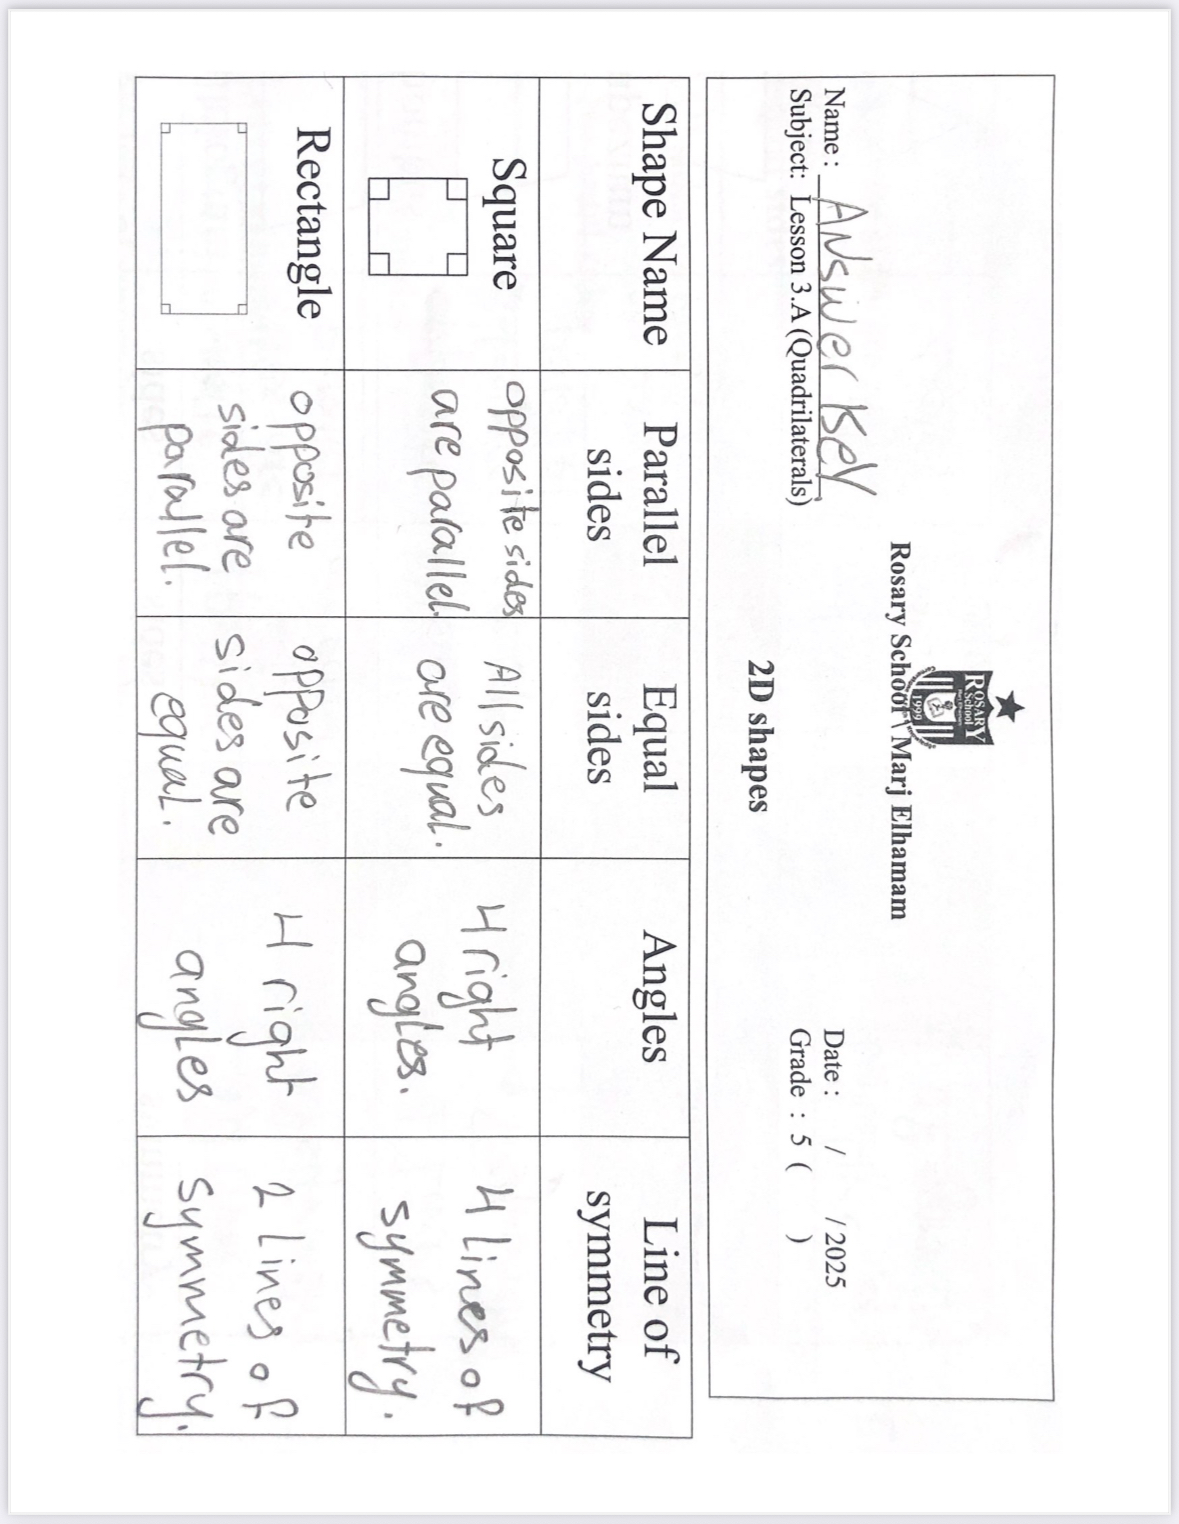 ROSARY
School
1999
Rosary School \ Marj Elhamam
Name : Answer Key
Date :    /    / 2025
Subject: Lesson 3.A (Quadrilaterals)
Grade : 5 (    )
2D shapes
Shape Name
Parallel
sides
Equal
sides
Angles
Line of
symmetry
Square
opposite sides
are parallel.
All sides
are equal.
4 right
angles.
4 lines of
symmetry.
Rectangle
opposite
sides are
parallel.
opposite
sides are
equal.
4 right
angles
2 lines of
symmetry.